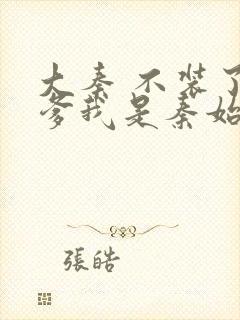 大秦 不裝了
爹我是秦始
張皓